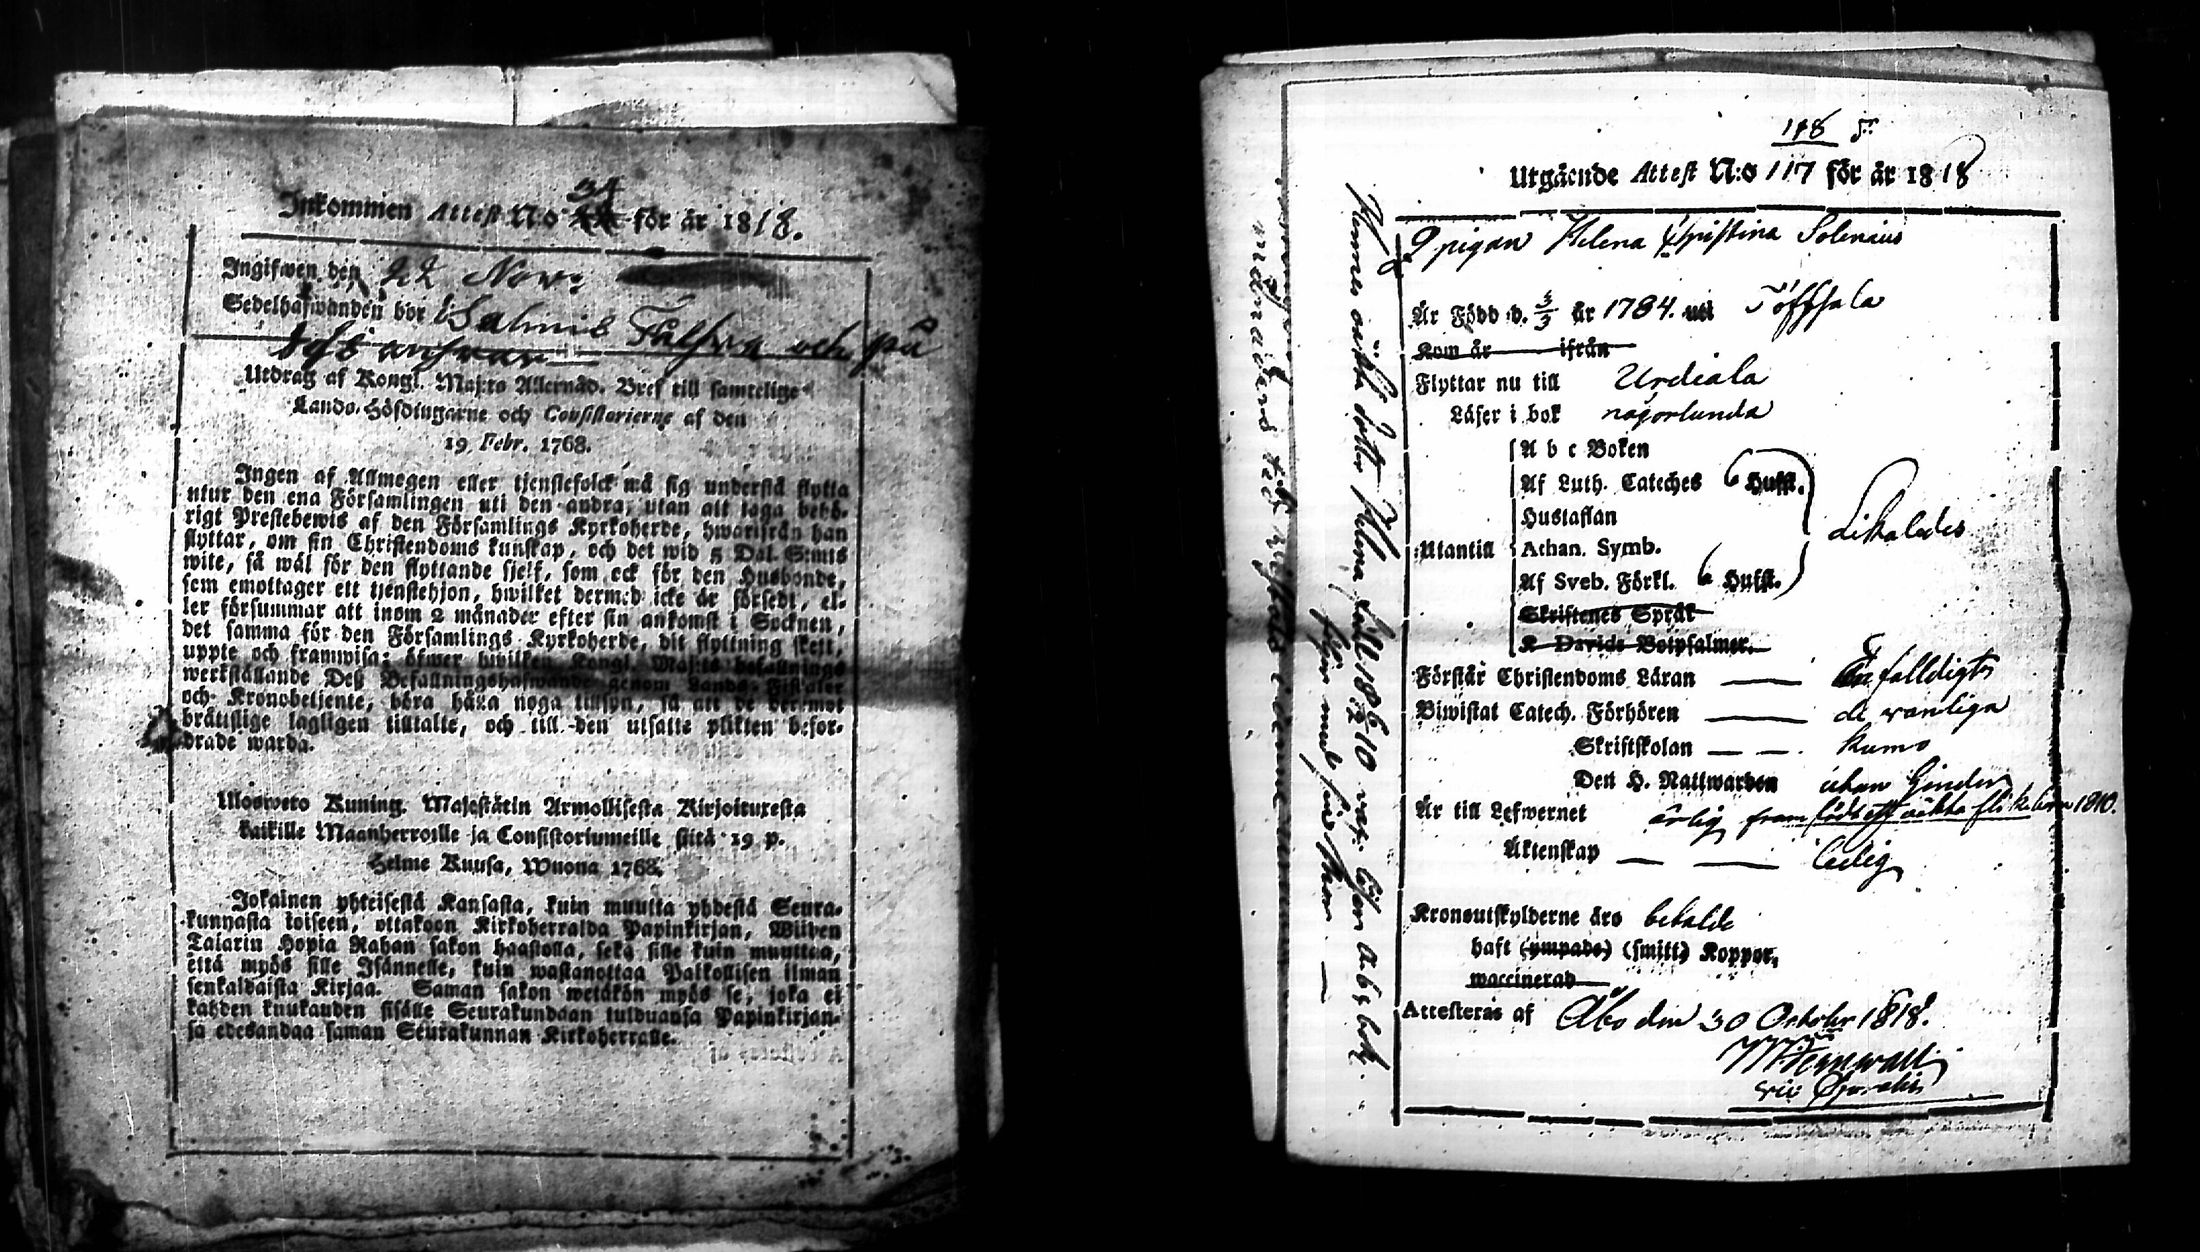 Inkommen Attest No 34 för år 1818.
Ingifwen den 22 Nov:
Sedelhafwanden bor i Salmis och på
Utdrag af Kongl. Maj:ts Allernåd. Bref till samtelige
Lands-Höfdingarne och Consistorierne af den
19 Febr. 1768.
Ingen af Allmogen eller tjenstefolck må sig understå flytta
utur den ena Församlingen uti den andra, utan att taga behö-
rigt Prestebewis af den Församlings Kyrkoherde, hwarifrån han
flyttar, om sin Christendoms kunskap, och det wid 5 Dal. S:mts
wite, så wäl för den flyttande sjelf, som ock för den Husbonde,
som emottager ett tjenstehjon, hwilket dermed icke är försedt, el-
ler försummar att inom 2 månader efter sin ankomst i Socknen,
det samma för den Församlings Kyrkoherde, dit flyttning skett,
uppte och framwisa; öfwer hwilken Kongl. Maj:ts befallnings
werkställande Deß Befallningshafwande genom Lands-Fiskaler
och Kronobetjente, böra hafwa noga tillsyn, så att de deremot
bråttslige lagligen tilltalte, och till den utsatte plikten befor-
drade warda.
Ulosweto Kuning. Majestätin Armollisesta Kirjoituxesta
kaikille Maanherroille ja Consistoriumeille siitä 19 p.
Helme Kuusa, Wuona 1768.
Jokainen yhteisestä Kansasta, kuin muutta yhdestä Seura-
kunnasta toiseen, ottakoon Kirkoherralda Papinkirjan, Wiiden
Talarin Hopia Rahan sakon haastolla, sekä sille kuin muuttaa,
että myös sille Isännelle, kuin wastanottaa Palkollisen ilman
senkaldaista Kirjaa. Saman sakon wetäkön myös se, joka ei
kahden kuukauden sisälle Seurakundaan tulduansa Papinkirjan-
sa edesandaa saman Seurakunnan Kirkoherralle.
118
Utgående Attest N:o 117 för år 1818
Pigan Helena Christina Solenius
Är Född d. 3/3 år 1784. uti Töffsala
Kom år ifrån
Flyttar nu till Urdiala
Läser i bok någorlunda
Utantill
A b c Boken
Af Luth. Cateches 6 Hufst.
Hustaflan
Athan. Symb.
Af Sveb. Förkl. 6 Hufst.
Skriftenes Språk
K Davids Botpsalmer.
Likaledes
Förstår Christendoms Läran Enfalldigt
Biwistat Catech. Förhören de vanliga
Skriftskolan
Den H. Nattwarden utan hinder
Är till Lefwernet ärlig fram födt ett oäkta flickebarn 1810.
Äktenskap ledig
Kronoutskylderne äro betalde
haft (ympade) (smitt) Koppor,
waccinerad
Attesteras af Åbo den 30 October 1818.
Hennes oäkta dotter Helena född 18 6/12 10 a.b.c. bok.
följer med